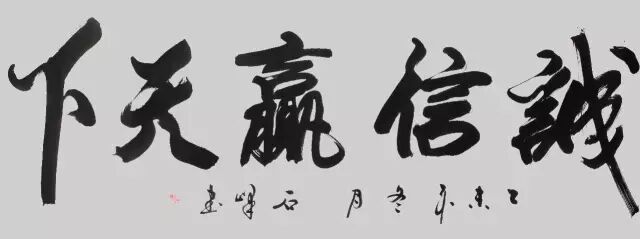 誠信贏天下
乙未年冬月 石峰書